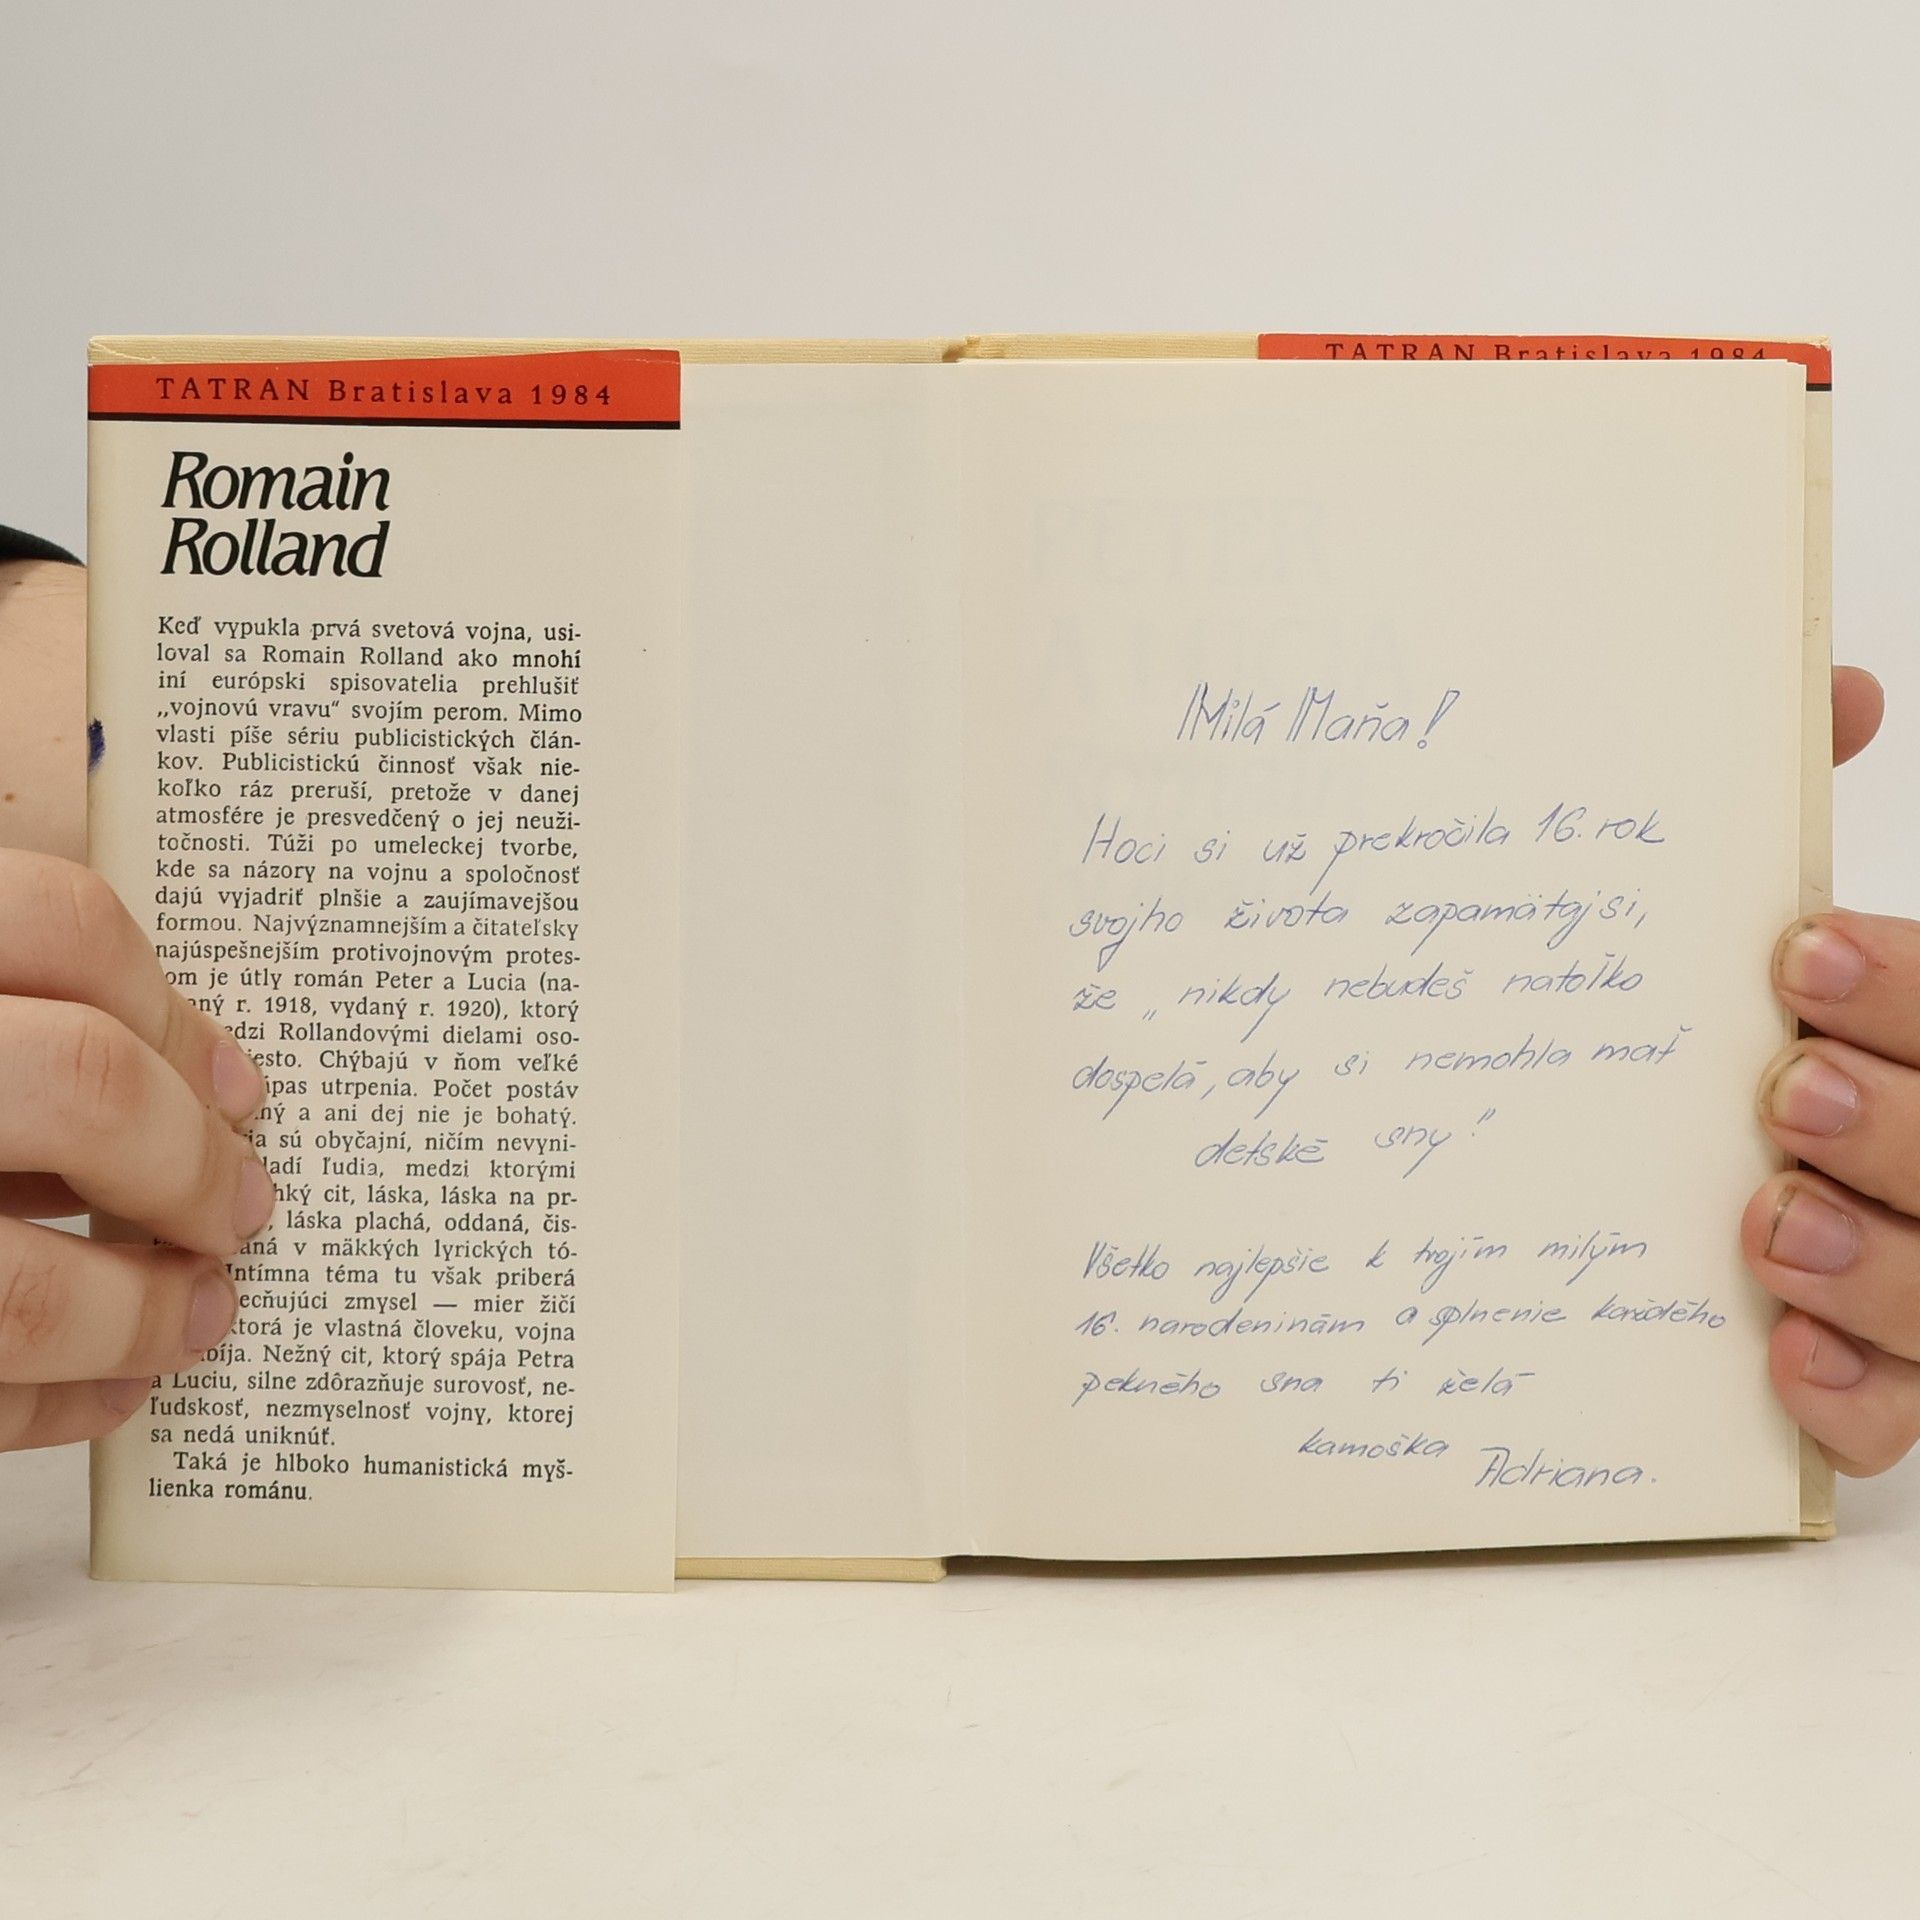 TATRAN Bratislava 1984
Romain
Rolland
Keď vypukla prvá svetová vojna, usi-
loval sa Romain Rolland ako mnohí
iní európski spisovatelia prehlušiť
„vojnovú vravu“ svojím perom. Mimo
vlasti píše sériu publicistických člán-
kov. Publicistickú činnosť však nie-
koľko ráz preruší, pretože v danej
atmosfére je presvedčený o jej neuži-
točnosti. Túži po umeleckej tvorbe,
kde sa názory na vojnu a spoločnosť
dajú vyjadriť plnšie a zaujímavejšou
formou. Najvýznamnejším a čitateľsky
najúspešnejším protivojnovým protes-
om je útly román Peter a Lucia (na-
r. 1918, vydaný r. 1920), ktorý
Rollandovými dielami oso-
Chýbajú v ňom veľké
utrpenia. Počet postáv
a ani dej nie je bohatý.
sú obyčajní, ničím nevyni-
ľudia, medzi ktorými
cit, láska, láska na pr-
láska plachá, oddaná, čis-
v mäkkých lyrických tó-
Intímna téma tu však priberá
zmysel — mier žičí
je vlastná človeku, vojna
Nežný cit, ktorý spája Petra
a Luciu, silne zdôrazňuje surovosť, ne-
ľudskosť, nezmyselnosť vojny, ktorej
sa nedá uniknúť.
Taká je hlboko humanistická myš-
lienka románu.
TATRAN Bratislava 1984
Milá Maňa!
Hoci si už prekročila 16. rok
svojho života zapamätaj si,
že „nikdy nebudeš natoľko
dospelá, aby si nemohla mať
detské sny"
Všetko najlepšie k tvojím milým
16. narodeninám a splnenie každého
pekného sna ti želá
kamoška
Adriana.